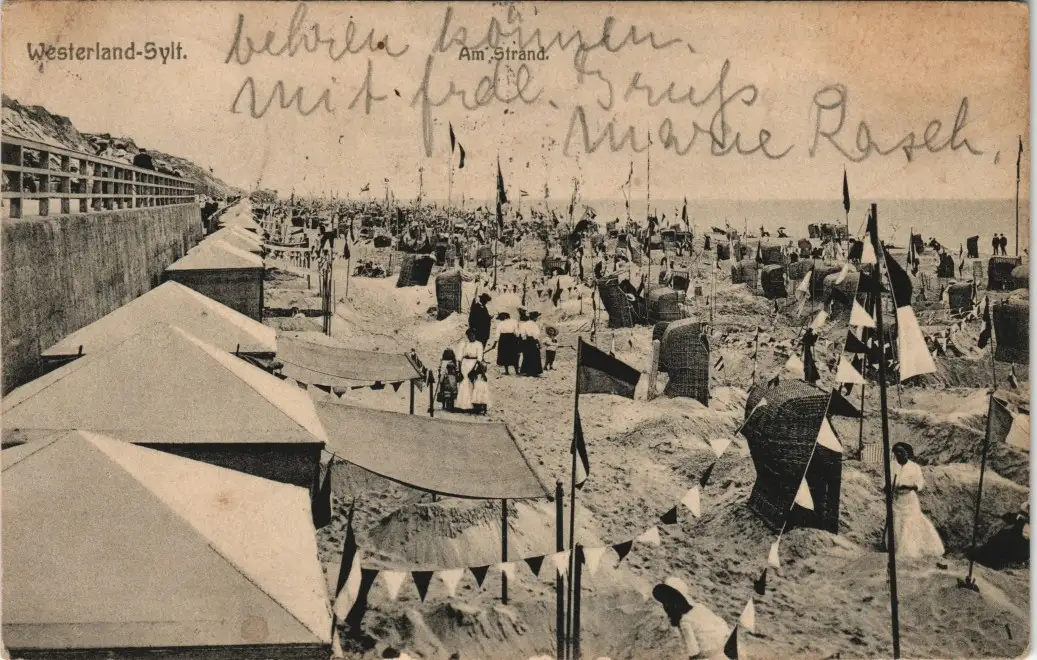 Westerland-Sylt.
Am Strand.
behren können.
Mit frdl. Gruß
Marie Rasch.